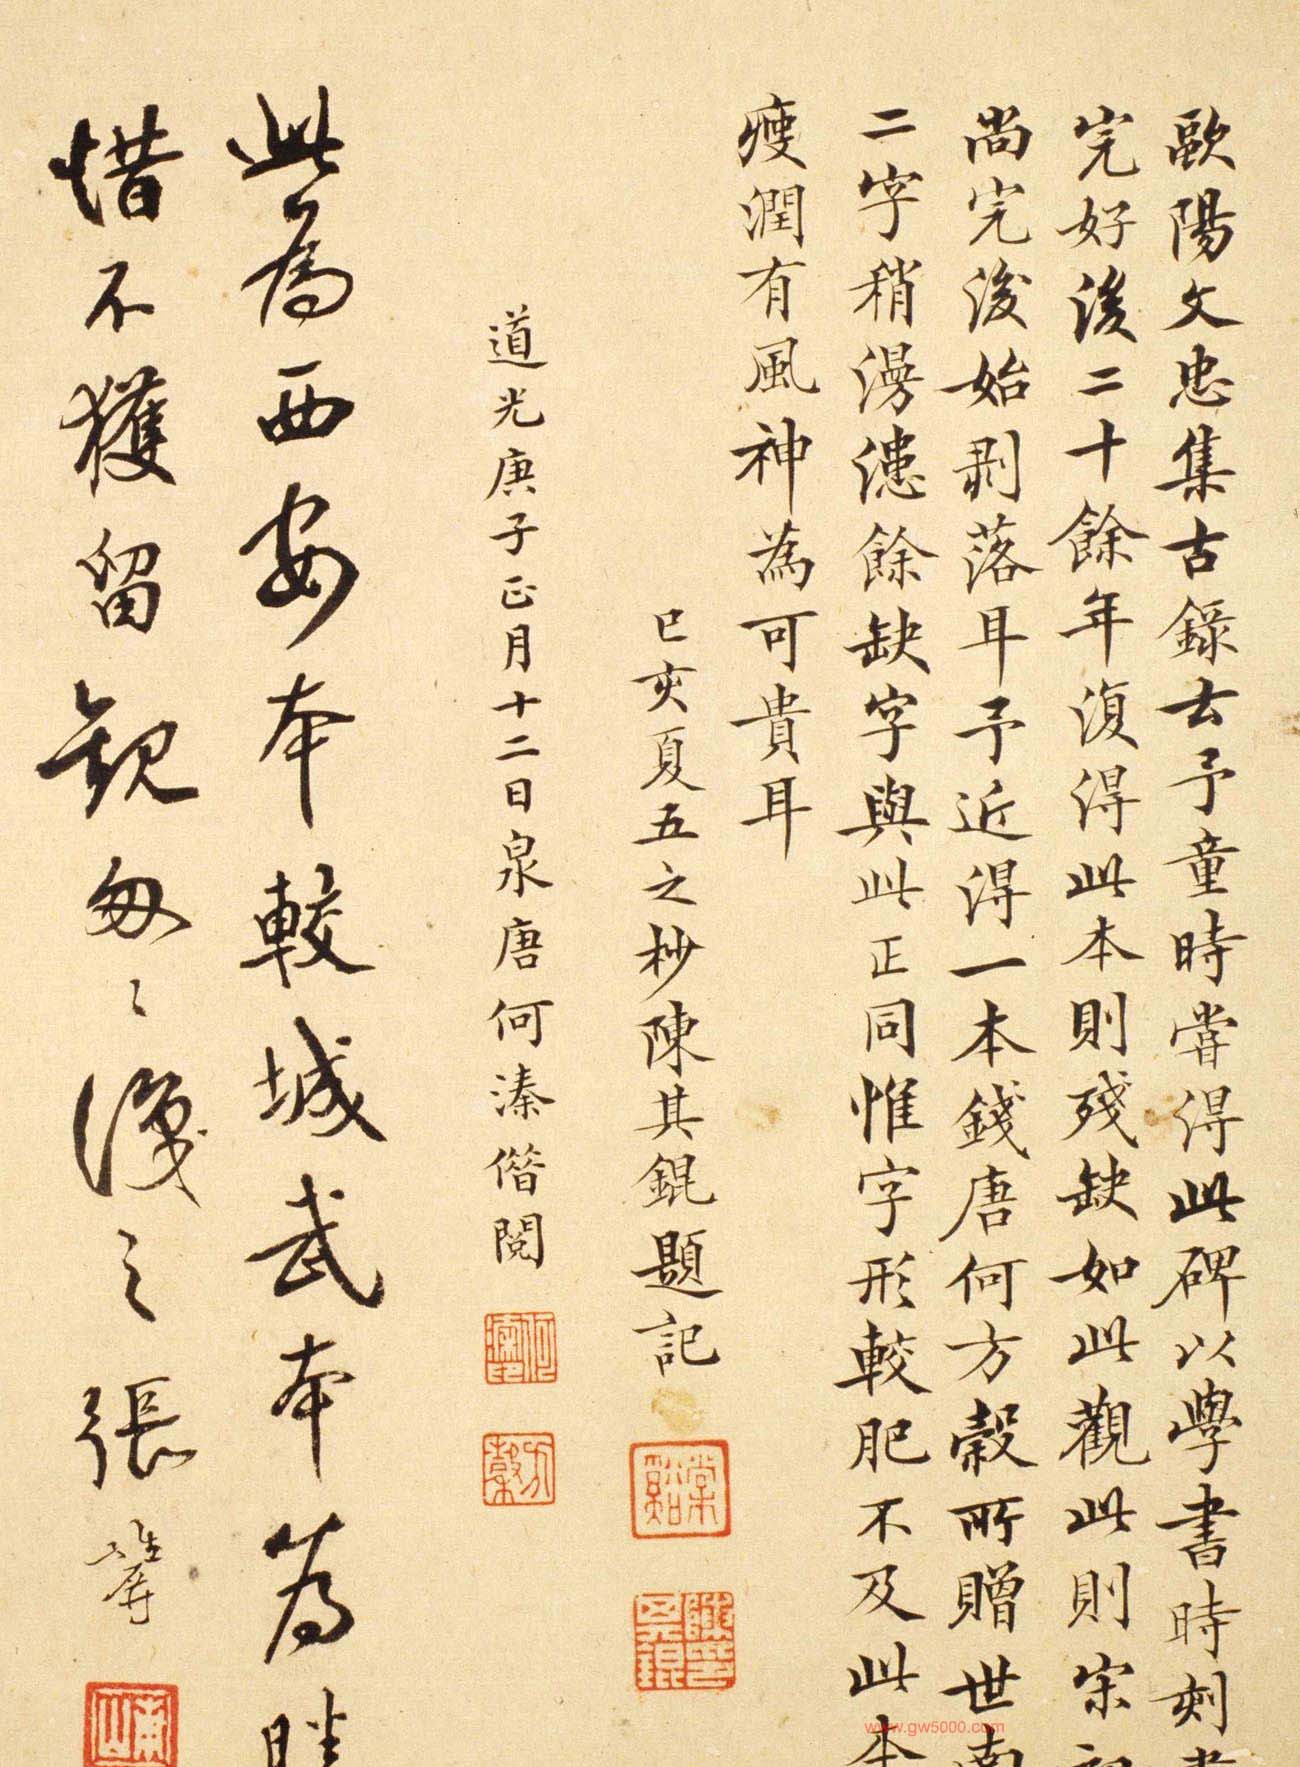 歐陽文忠集古錄云予童時嘗得此碑以學書時刻畫
完好後二十餘年復得此本則殘缺如此觀此則宋初
尚完後始剥落耳予近得一本錢唐何方穀所贈世南
二字稍漫漶餘缺字與此正同惟字形較肥不及此本
瘦潤有風神為可貴耳
己亥夏五之杪陳其錕題記
棠谿
陳其錕印
道光庚子正月十二日泉唐何溱偕閱
何溱印
方穀
此為西安本較城武本為勝
惜不獲留觀匆匆還之張
www.gw5000.com